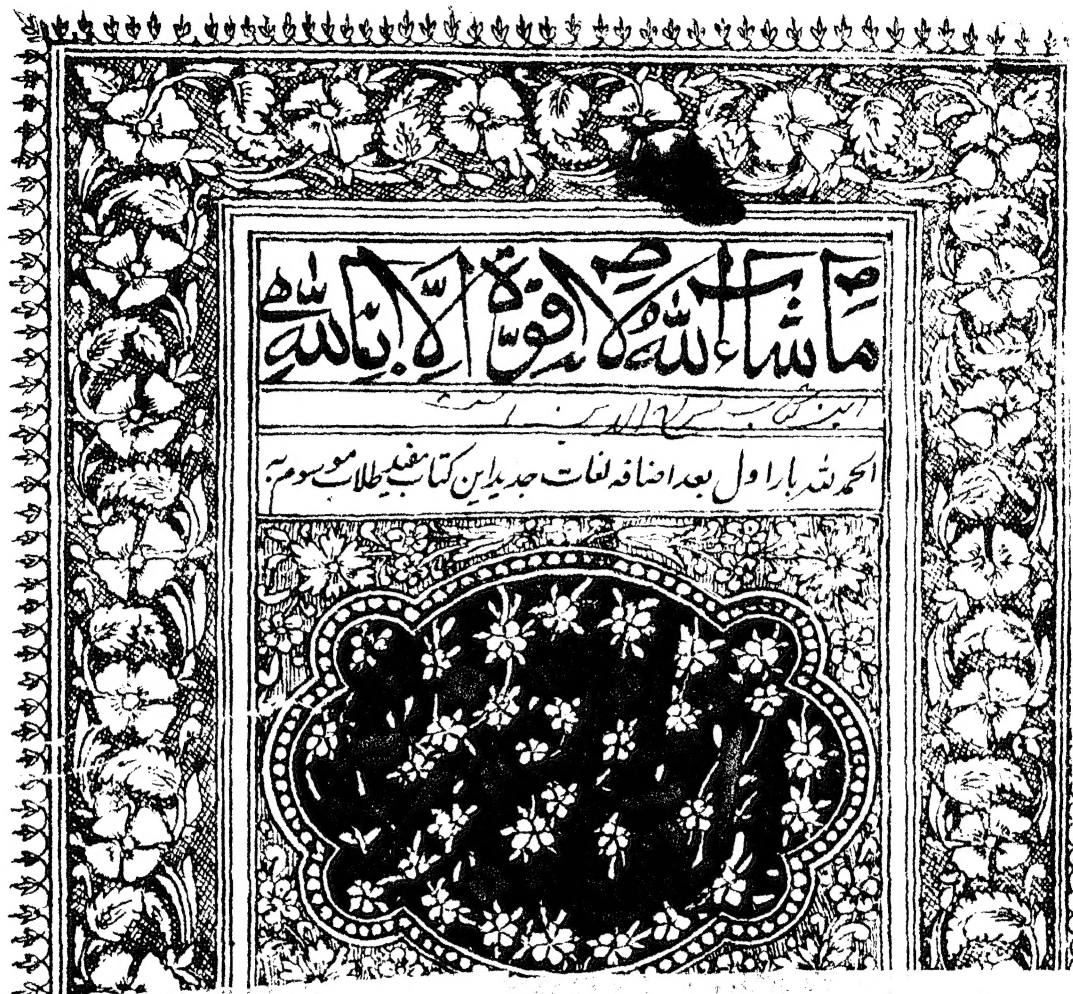 ما شاء الله لا قوة الا بالله
این کتاب
الحمد لله بار اول بعد اضافه لغات جدید این کتاب مفید طلاب موسوم به